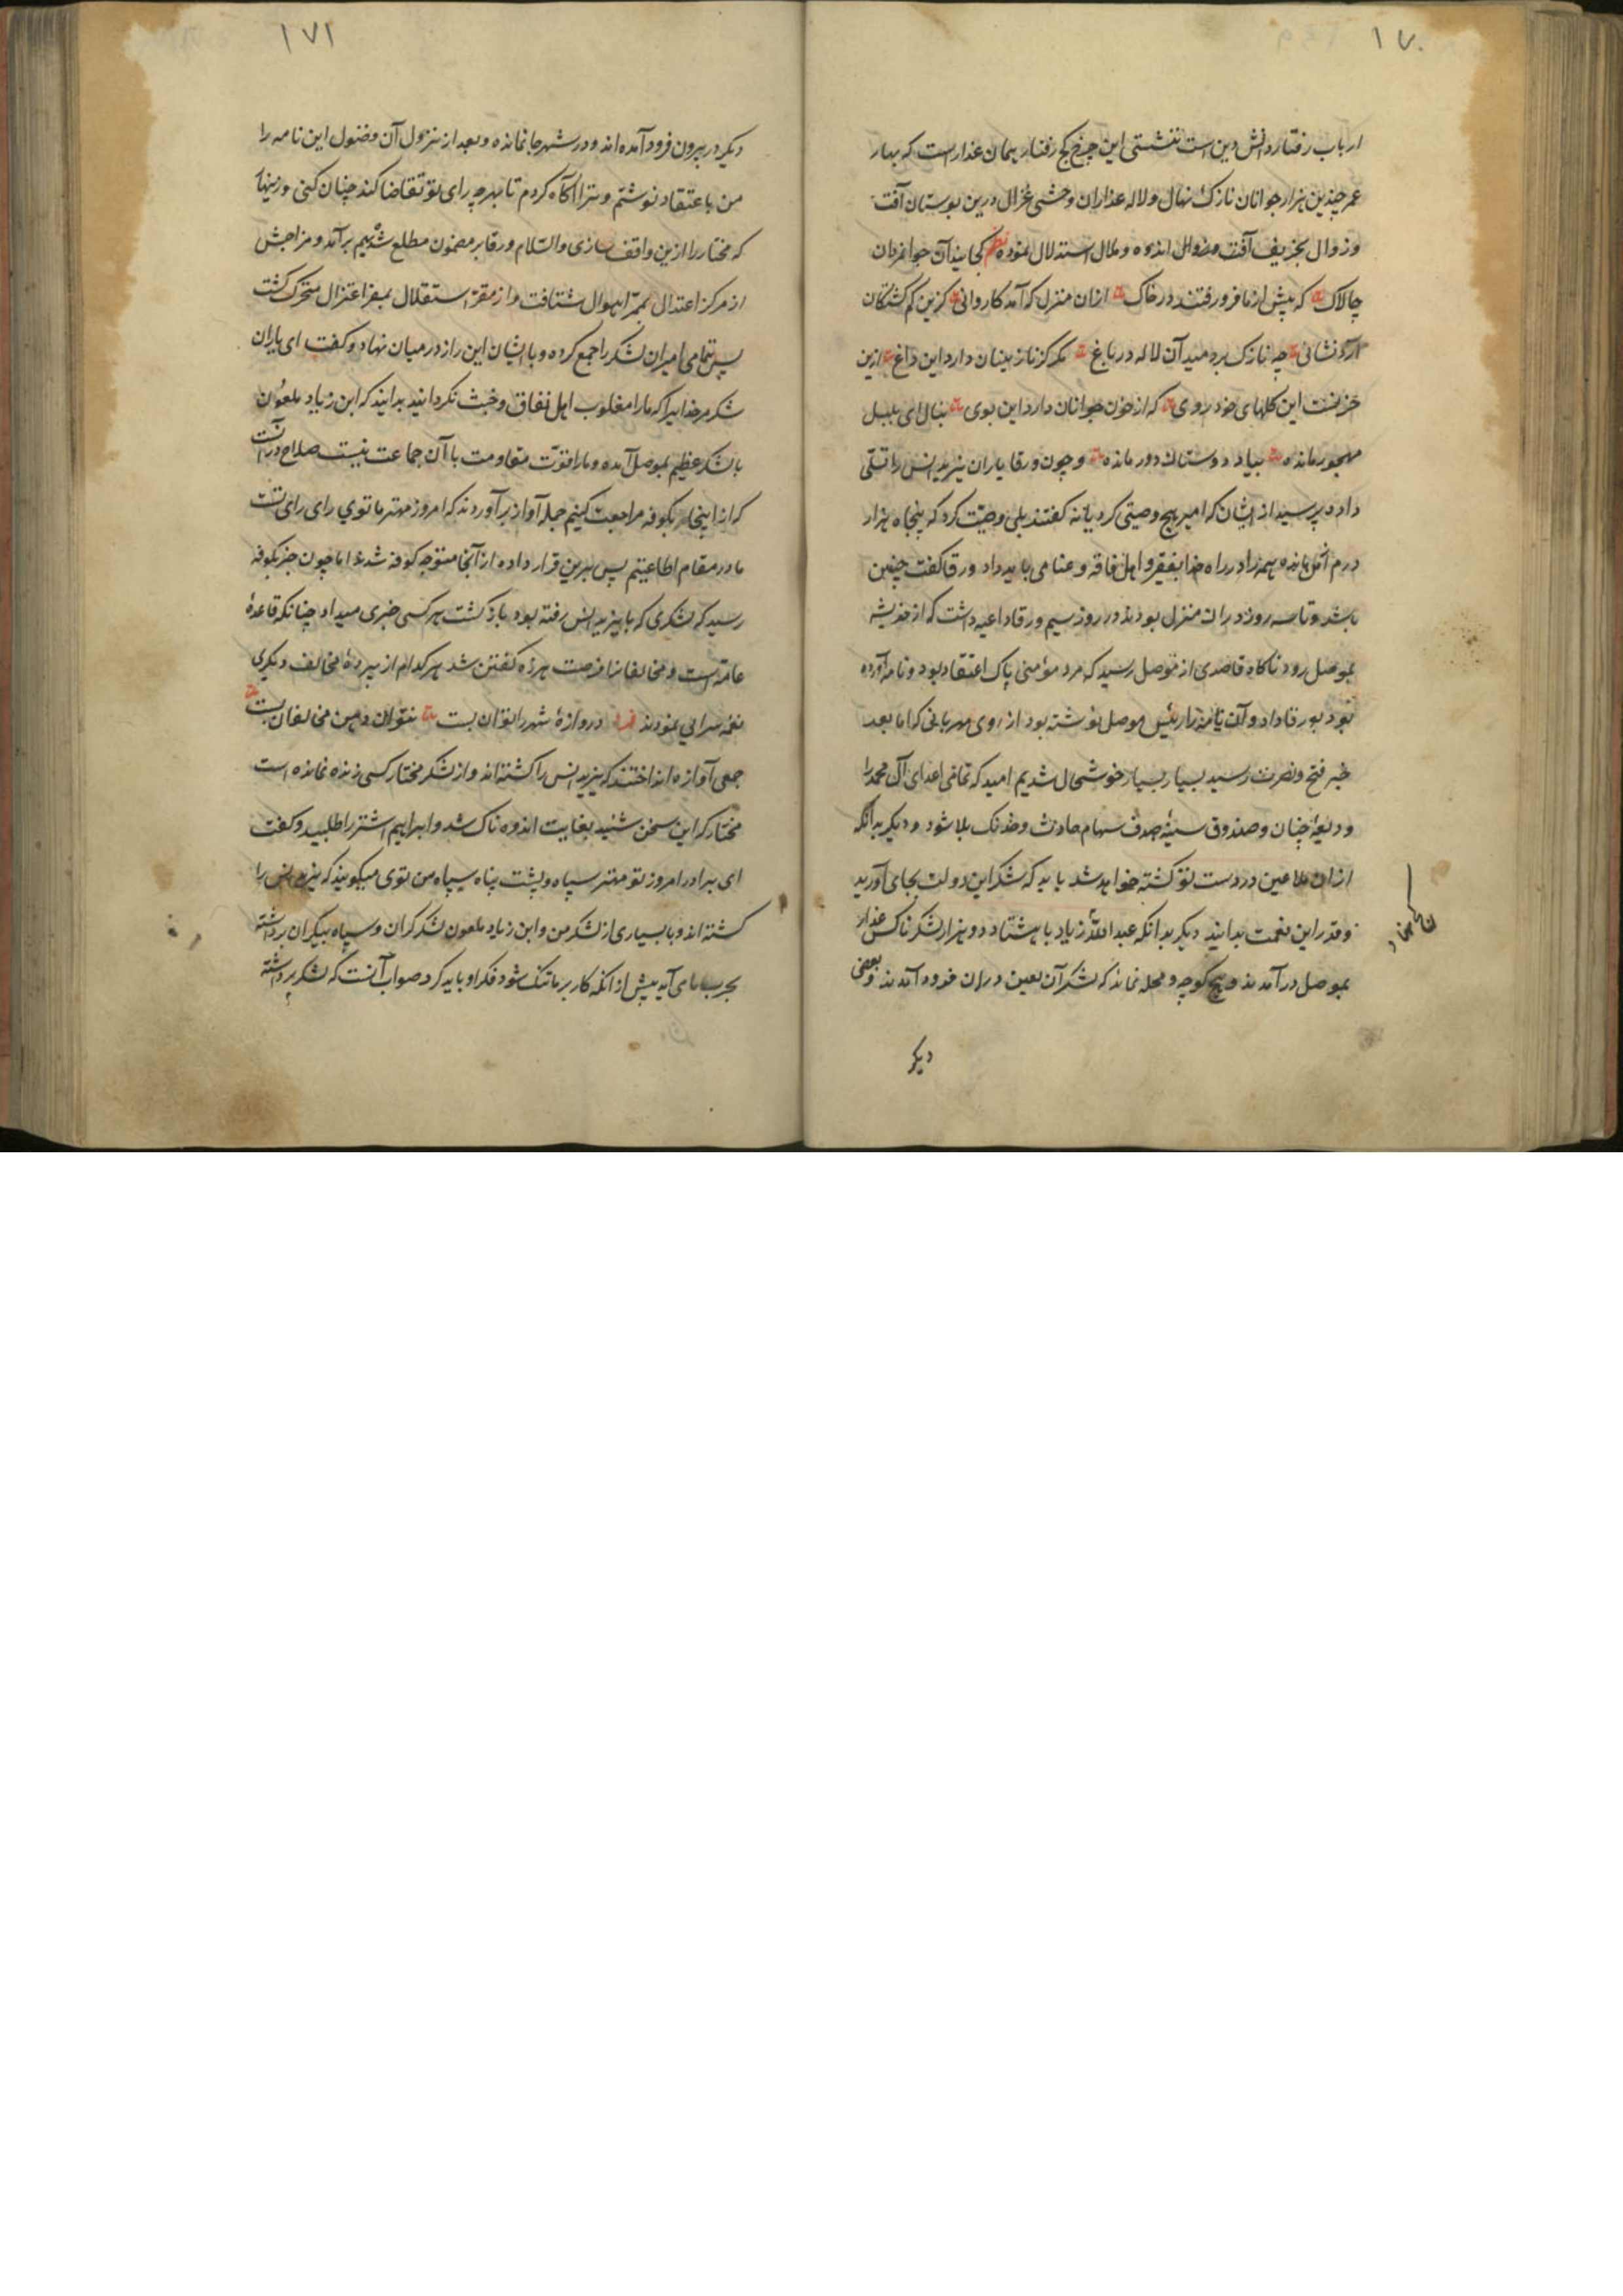 ١٧٠
ارباب رفتار دانش دین است نقشتی این چرخ کج رفتار پیمان غدار است که بهار
عمر چندین هزار جوانان نازک نهال و لاله عذاران وحشی غزال درین بوستان آفت
و زوال بخریف آفت و ملال استدلال نموده نظم کجایند آن جوانمردان
چالاک که پیش از ما فرو رفتند در خاک ازان منزل که آمد کاروانی کزین گم گشتگان
آرد نشانی چه نازک بردمید آن لاله در باغ مگر کز نازنینان دارد این داغ ازین
این گلهای خود روی که از خون جوانان دارد این بوی بنال ای بلبل
مهجور مانده بیاد دوستان دور مانده و چون ورقا یاران یزید انس را تسلی
داده پرسید از ایشان که امیر هیچ وصیتی کرد یا نه گفتند بلی وصیت کرد که پنجاه هزار
درم همه را در راه خدا بفقیر و اهل فاقه و عنا می باید داد ورقا گفت چنین
باشد و تا سه روز دران منزل بودند در روز سیم ورقا داعیه داشت که از
بموصل رود ناگاه قاصدی از موصل رسید که مرد مؤمنی پاک اعتقاد بود و نامه آورده
بود بورقا داد و آن نامه را رئیس موصل نوشته بود از روی مهربانی که اما بعد
خبر فتح و نصرت رسید بسیار بسیار خوشحال شدیم امید که تمامی اعدای آل محمد را
ودیعهٔ جنان و صندوق سینه صدف سهام حادث و خدنک بلا شود و دیگر بدانکه
ازان ملاعین در دست تو کشته خواهد شد باید که شکر این دولت بجای آورید
و قدر این نعمت بدانید دیگر بدانکه عبدالله زیاد با هشتاد و دو هزار لشکر ناکس غدار
بموصل درآمدند و هیچ کوچه و محله نماند که لشکر آن لعین دران فرود آمدند و بعضی
دیگر
١٧١
دیگر در بیرون فرود آمده اند و در شهر جا نمانده و بعد از نزول آن فضول این نامه را
من باعتقاد نوشتم و ترا آگاه کردم تا بهر چه رای تو تقاضا کند چنان کنی و زینهار
که مختار را ازین واقف سازی والسلام ورقا بر مضمون مطلع شد بهم برآمد و مزاجش
از مرکز اعتدال بممرّ اهوال شتافت و از مقرّ استقلال بمفر اعتزال متحرک گشت
پس تمامی امیران لشکر را جمع کرده و با ایشان این راز در میان نهاد و گفت ای یاران
شکر مر خدایرا که ما را مغلوب اهل نفاق و خبث نگردانید بدانید که ابن زیاد ملعون
با لشکر عظیم بموصل آمده و ما را قوّت مقاومت با آن جماعت نیست صلاح در آنست
که از اینجا بکوفه مراجعت کنیم جمله آواز برآوردند که امروز مهتر ما توی رای رای تست
ما در مقام اطاعتیم پس برین قرار داده از آنجا متوجه کوفه شدند اما چون خبر بکوفه
رسید که لشکری که با یزید انس رفته بود بازگشت هر کسی خبری میداد چنانکه قاعدهٔ
عامه است و مخالفانرا فرصت هرزه گفتن شد هر کدام از پرده مخالف دیگری
نغمه سرایی نمودند فرد دروازهٔ شهر را توان بست نتوان دهن مخالفان بست
جمعی آوازه انداختند که یزید انس را کشته اند و از لشکر مختار کسی زنده نمانده است
مختار که این سخن شنید بغایت اندوهناک شد و ابراهیم اشتر را طلبید و گفت
ای برادر امروز تو مهتر سپاه و پشت پناه سپاه من توی میگویند که یزید انس را
کشته اند و با بسیاری از لشکر من و ابن زیاد ملعون لشکر گران و سپاه بیکران برداشته
بحرب ما می آید پیش از آنکه کار بر ما تنک شود فکر او باید کرد صواب آنست که لشکر برداشته